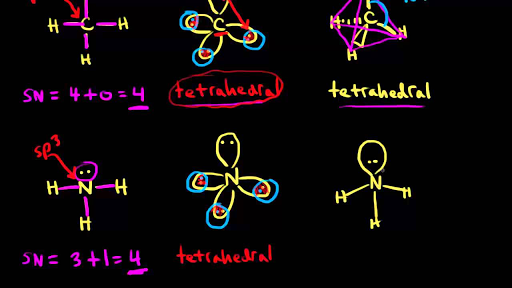 H C H
C
H C H
H
H
H
SN = 4+0=4
tetrahedral
tetrahedral
sp3
H N H
H
N
N
H H
H
SN = 3+1=4
tetrahedral